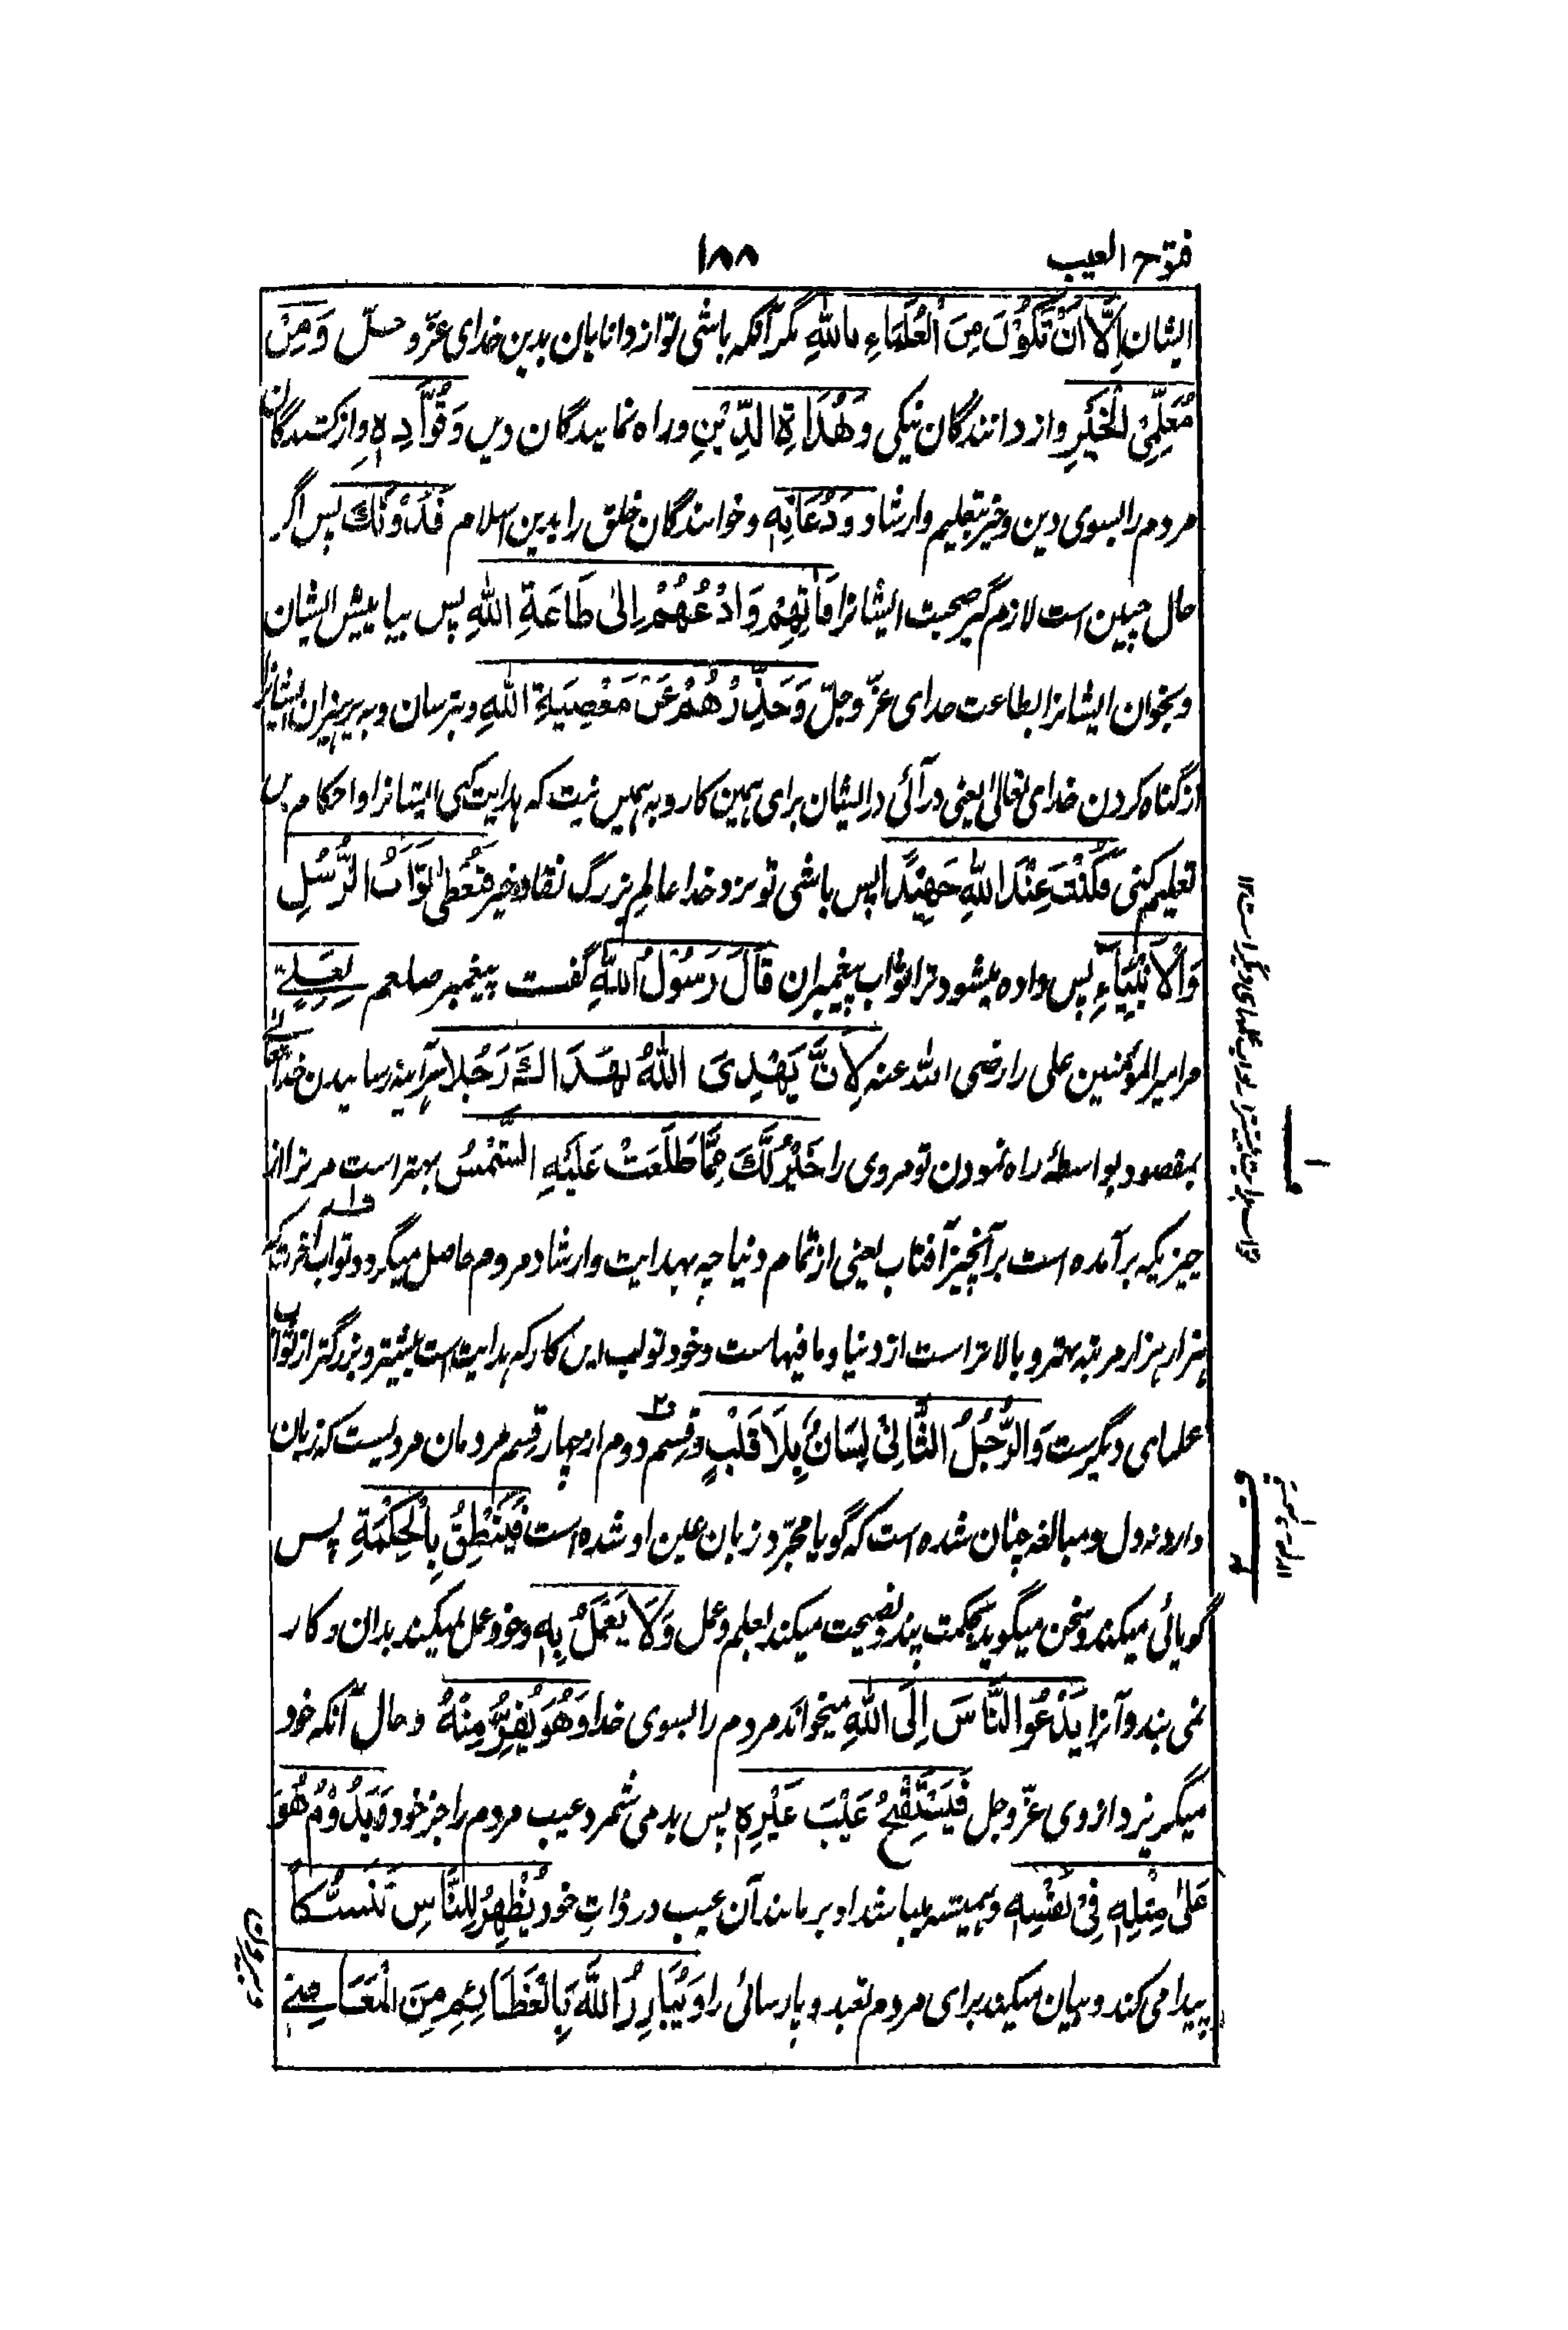 فتوح العیب
۱۸۸
الیشان اِلَّا اَنْ تَكُوْنَ مِنَ الْعُلَمَاءِ بِاللّٰهِ مگر آنکه باشی تو از دانایان بدین خدای عزّ و جلّ وَمِنْ
مُعَلِّمِیْ الْخَیْرِ و از دانندگان نیکی وَهُدَاةِ الدِّیْنِ و راه نمایندگان دین وَقُوَّادِهٖ و از کشندگان
مردم را بسوی دین و خیر بتعلیم و ارشاد وَدُعَاتِهٖ و خوانندگان خلق را بدین اسلام فَدُوْنَكَ پس اگر
حال چنین است لازم گیر صحبت ایشانرا فَأْتِهِمْ وَادْعُهُمْ اِلٰی طَاعَةِ اللّٰهِ پس بیا بپیش ایشان
و بخوان ایشانرا بطاعت خدای عزّ و جلّ وَحَذِّرْهُمْ عَنْ مَعْصِیَةِ اللّٰهِ و بترسان و به پرهیزان ایشانرا
از گناه کردن خدای تعالیٰ یعنی در آئی در ایشان برای همین کار و به همین نیت که هدایت کنی ایشانرا و احکام
تعلیم کنی فَكُنْتَ عِنْدَ اللّٰهِ جَهِیْدًا پس باشی تو نزد خدا عالم بزرگ نقاد خیر فَتُعْطٰی ثَوَابَ الرُّسُلِ
وَالْاَنْبِیَآءِ پس داده میشود ترا ثواب پیغمبران قَالَ رَسُوْلُ اللّٰهِ گفت پیغمبر صلعم لِعَلِیٍّ
مر امیر المؤمنین علی را رضی الله عنه لَاَنَّ یَهْدِیَ اللّٰهُ بِهُدَاكَ رَجُلًا هر آئینه رسانیدن خدا تعالٰی
بمقصود بواسطهٔ راه نمودن تو مردی را خَیْرٌ لَّكَ مِمَّا طَلَعَتْ عَلَیْهِ الشَّمْسُ بهتر است مر ترا از
چیزیکه برآمده است بر آنچیز آفتاب یعنی از تمام دنیا چه بهدایت و ارشاد مردم حاصل میگردد ثواب آخرت که
هزار هزار مرتبه بهتر و بالاتر است از دنیا و ما فیهاست و خود ثواب این کار که هدایت است بیشتر و بزرگتر از ثواب
عملهای دیگرست وَالرَّجُلُ الثَّانِیْ لِسَانٌ بِلَا قَلْبٍ و قسم دوم از چهار قسم مردمان مردیست که زبان
دارد نه دل و مبالغه چنان شده است که گویا مجرّد زبان عین او شده است فَیَنْطِقُ بِالْحِكْمَةِ پس
گویائی میکند و سخن میگوید بحکمت پند و نصیحت میکند بعلم و عمل وَلَا یَعْمَلُ بِهٖ و خود عمل نمیکند بدان و کار
نمی بندد آنرا یَدْعُوا النَّاسَ اِلَی اللّٰهِ میخواند مردم را بسوی خدا وَهُوَ یَفِرُّ مِنْهُ و حال آنکه خود
میگریزد از وی عزّ و جل فَیَسْتَقْبِحُ عَیْبَ غَیْرِهٖ پس بد می شمرد عیب مردم را جز خود وَیَدُوْمُ هُوَ
عَلٰی مِثْلِهٖ فِیْ نَفْسِهٖ و همیشه میباشد او بر مانند آن عیب در ذات خود یُظْهِرُ لِلنَّاسِ تَنَسُّكًا
پیدا می کند و بیان میکند برای مردم تعبد و پارسائی را وَیُبَارِزُ اللّٰهَ بِالْعَظَائِمِ مِنَ الْمَعَاصِیْ